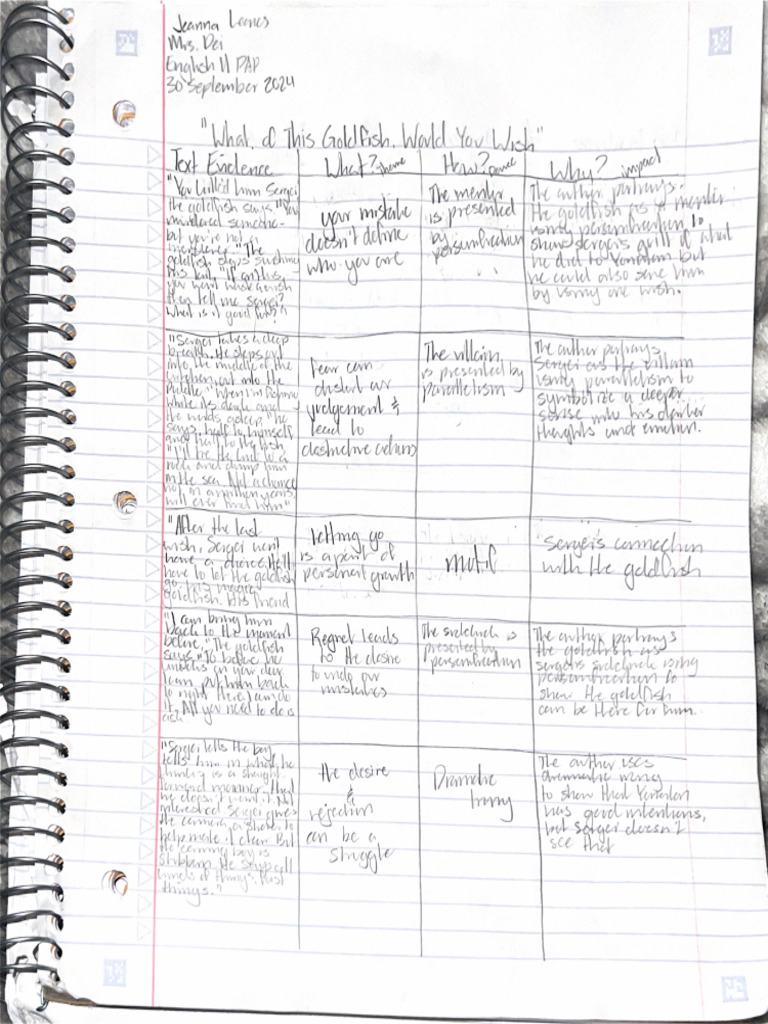 Jeanna
Mrs. Dei
English II PAP
30 September 2024
"What, of This Goldfish, Would You Wish"
Text Evidence
What? theme
How?
Why? impact
"You killed him Sergei
the goldfish says. "You
murdered someone-
but you're not a
murderer." The
goldfish stops swishing
his tail. "If on this
you won't waste a wish
then tell me Sergei?
What is it good for?"
your mistake
doesn't define
who you are
The mentor
is presented
by
personification
The author portrays
the goldfish as a mentor
using personification to
show Sergei's guilt of what
he did to Yonatan but
he could also save him
by using one wish.
"Sergei takes a deep
breath. He steps out
into the middle of the
kitchen, out into the
puddle. "When I'm fishing
while it's dark and
the world's asleep," he
says, half to himself
and half to the fish
"I'll tie the kid to a
rock and dump him
in the sea. Not a chance
not in a million years,
will ever find him"
Fear can
distort our
judgement &
lead to
destructive actions
The villain
is presented by
parallelism
The author portrays
Sergei as the villain
using parallelism to
symbolize a deeper
sense into his darker
thoughts and emotion.
"After the last
wish, Sergei won't
have a choice. He'll
have to let the goldfish
go, his magic
goldfish. his friend
letting go
is a part of
personal growth
motif
Sergei's connection
with the goldfish
"I can bring him
back to the moment
before," The goldfish
says. "To before he
knocks on your door.
I can put him back
to right there. I can do
it. All you need to do is
ask"
Regret leads
to the desire
to undo our
mistakes
The sidekick is
presented by
personification
The author portrays
the goldfish as
sergeis sidekick using
personification to
show the goldfish
can be there for him.
"Sergei tells the boy,
tells him in what he
thinking is a straight
forward manner, that
he doesn't want it. Not
interested. Sergei gives
the camera a shove, to
help make it clear. But
the earring boy is
stubborn. He says all
kinds of things. Fast
things."
the desire
&
rejection
can be a
struggle
Dramatic
Irony
The author uses
dramatic irony
to show that Yonatan
has good intentions,
but sergei doesn't
see that